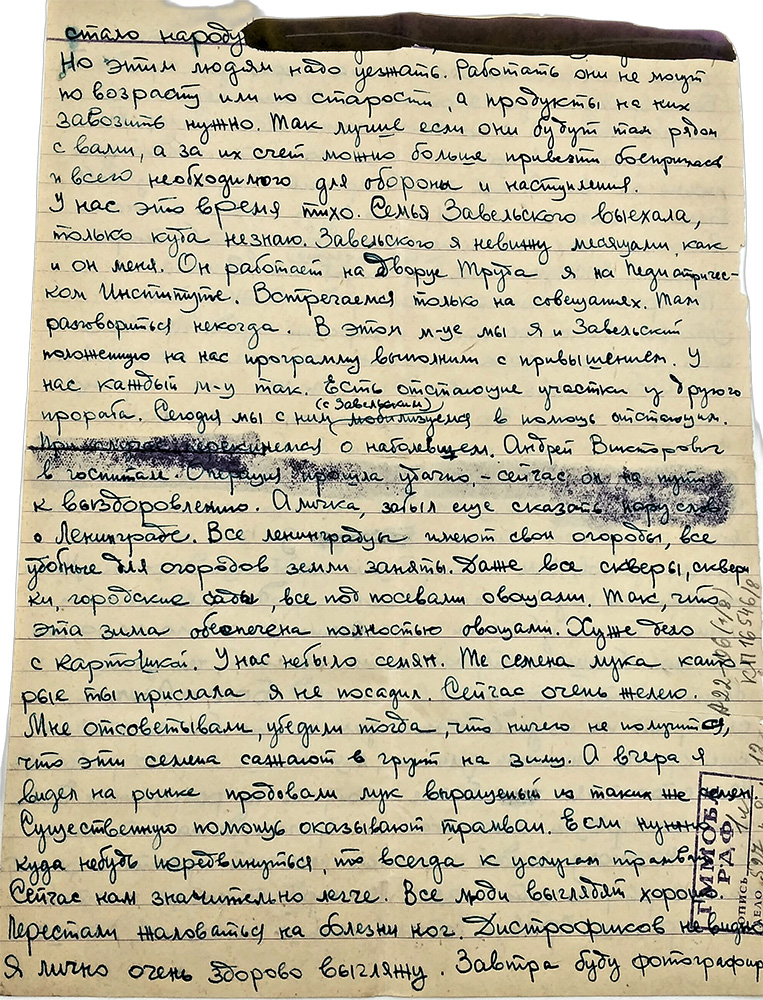 стало народу
Но этим людям надо уезжать. Работать они не могут
по возрасту или по старости, а продукты на них
завозить нужно. Так лучше если они будут там рядом
с вами, а за их счет можно больше привезти боеприпасов
и всего необходимого для обороны и наступления.
У нас это время тихо. Семья Завельского выехала,
только кута незнаю. Завельского я невижу месяцами, как
и он меня. Он работает на Дворце Труда я на Педиатричес-
ком Институте. Встречаемся только на совещаниях. Там
разговориться некогда. В этом м-це мы я и Завельский
положенную на нас программу выполнили с привышением. У
нас каждый м-ц так. Есть отстающие участки у другого
прораба. Сегодня мы с ним (с Завельским) мобилизуемся в помощь отстающим.
При случае перекинемся о наболевшем. Андрей Викторович
в госпитале. Операция прошла удачно, - сейчас он на пути
к выздоровлению. Аличка, забыл еще сказать пару слов
о Ленинграде. Все ленинградцы имеют свои огороды, все
удобные для огородов земли заняты. Даже все скверы, сквери
ки, городские сады, все под посевами овощами. Так, что
эта зима обеспечена полностью овощами. Хуже дело
с картошкой. У нас небыло семян. Те семена лука кото
рые ты прислала я не посадил. Сейчас очень желею.
Мне отсоветывали, убедили тогда, что ничего не получится,
что эти семена сажают в грунт на зиму. А вчера я
видел на рынке продовали лук выращеный из таких же семян.
Существенную помощь оказывают трамваи. Если нужно
куда нибудь передвинуться, то всегда к услугам трамвай
Сейчас нам значительно легче. Все люди выглядят хорошо.
Перестали жаловаться на болезни ног. Дистрофиков невидно
Я лично очень здорово выгляжу. Завтра буду фотографир
КП 16546/8
ГММОБЛ
РДФ
опись
дело